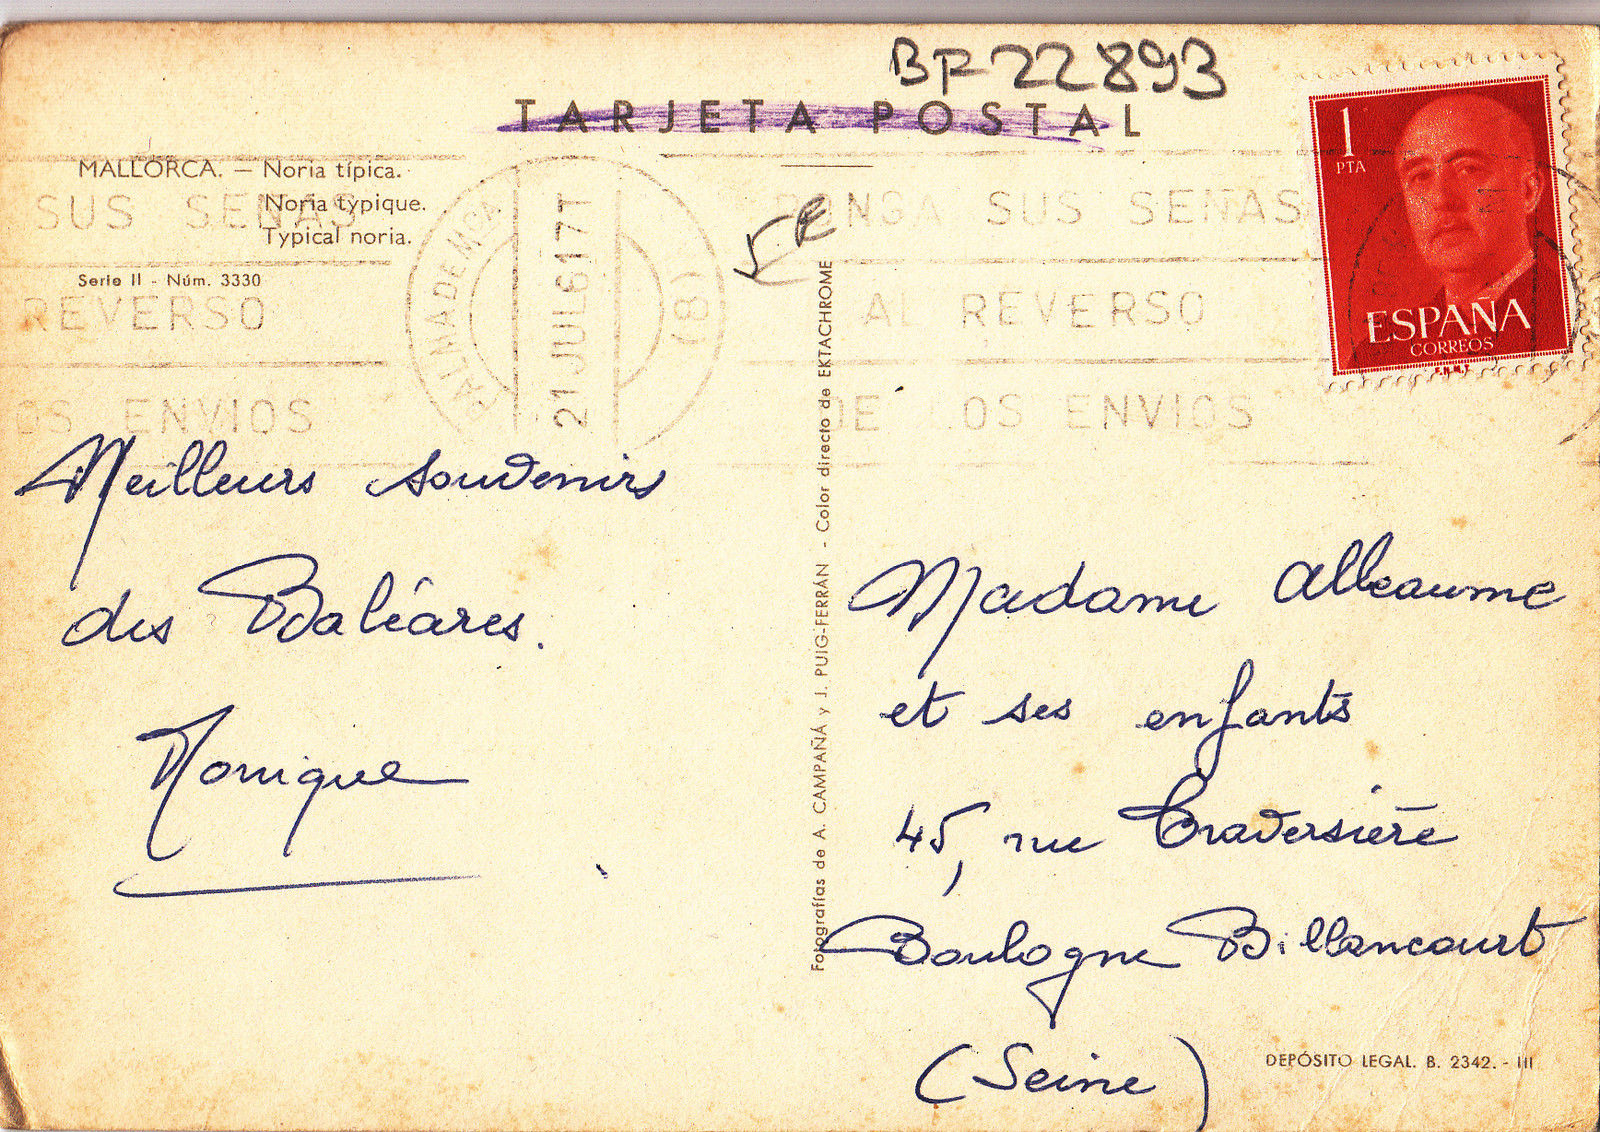 BR22893
TARJETA POSTAL
MALLORCA. — Noria típica.
Noria typique.
Typical noria.
Serie II - Núm. 3330
SUS SEÑAS
REVERSO
OS ENVIOS
PALMA DE MCA
21 JUL 61 7 T
(8)
PONGA SUS SEÑAS
AL REVERSO
DE LOS ENVIOS
1
PTA
ESPAÑA
CORREOS
F.N.M.T.
Meilleurs souvenirs
des Baléares.
Monique
Fotografías de A. CAMPAÑÁ y J. PUIG-FERRÁN - Color directo de EKTACHROME
Madame Alleaume
et ses enfants
45, rue Traversière
Boulogne Billancourt
(Seine)
DEPÓSITO LEGAL. B. 2342. - III